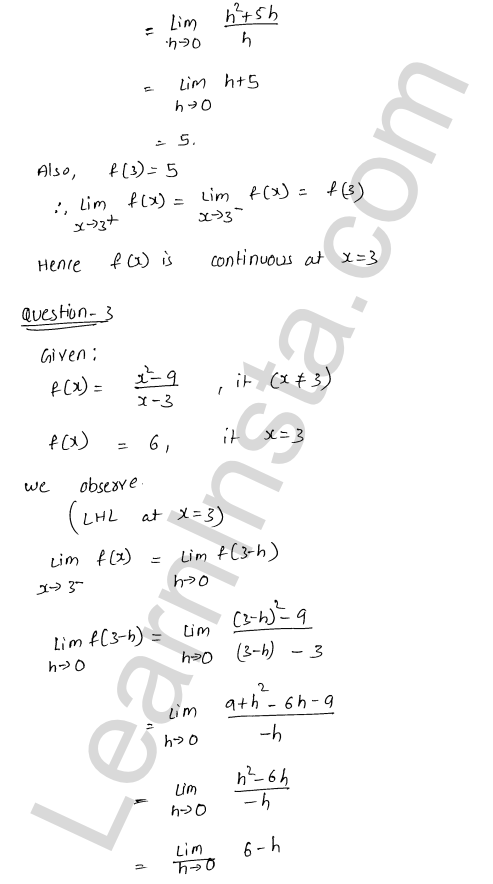 = Lim h→0 (h²+5h)/h
= Lim h→0 h+5
= 5.
Also, f(3) = 5
∴, Lim x→3⁺ f(x) = Lim x→3⁻ f(x) = f(3)
Hence f(x) is continuous at x=3
Question-3
Given:
f(x) = (x²-9)/(x-3) , if (x≠3)
f(x) = 6, if x=3
we observe.
(LHL at x=3)
Lim x→3⁻ f(x) = Lim h→0 f(3-h)
Lim h→0 f(3-h) = Lim h→0 ((3-h)²-9)/((3-h) - 3)
= Lim h→0 (9+h²-6h-9)/(-h)
= Lim h→0 (h²-6h)/(-h)
= Lim h→0 6-h
LearnInsta.com